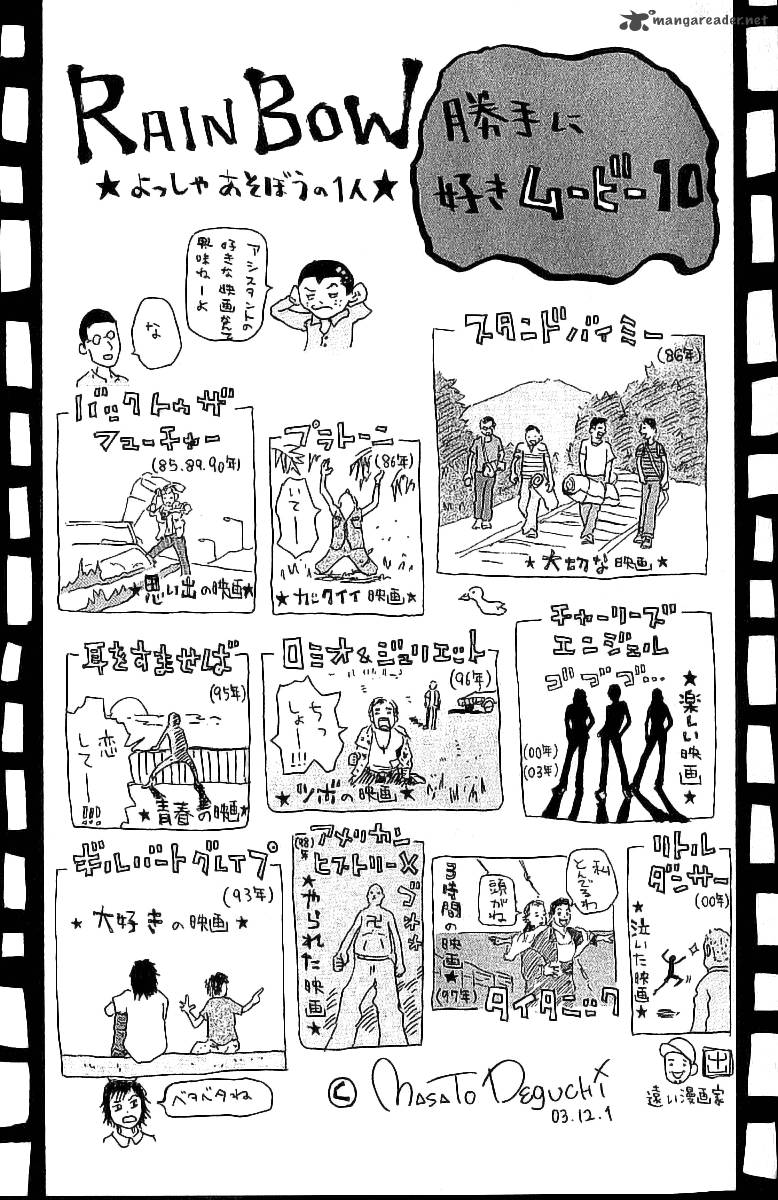 mangareader.net
RAINBOW
★よっしゃあそぼうの1人★
勝手に
好きムービー10
アシスタントの
好きな映画なんて
興味ねーよ
な
スタンドバイミー
(86年)
★大切な映画★
バックトゥザ
フューチャー
(85.89.90年)
★思い出の映画★
プラトーン
(86年)
いてーー
★カックイイ映画★
耳をすませば
(95年)
恋
してー!!!
★青春の映画★
ロミオ&ジュリエット
(96年)
ちっ
しょー!!!
★ツボの映画★
チャーリーズ
エンジェル
ゴゴゴ…
(00年)
(03年)
★楽しい映画★
ギルバートグレイプ
(93年)
★大好きの映画★
アメリカン
ヒストリーX
(98年)
★やられた映画★
私
とんでるわ
頭がね
3時間の映画★
(97年)
タイタニック
リトル
ダンサー
(00年)
★泣いた映画★
ベタベタね
© MASATO DEGUCHI
03.12.1
遠い漫画家